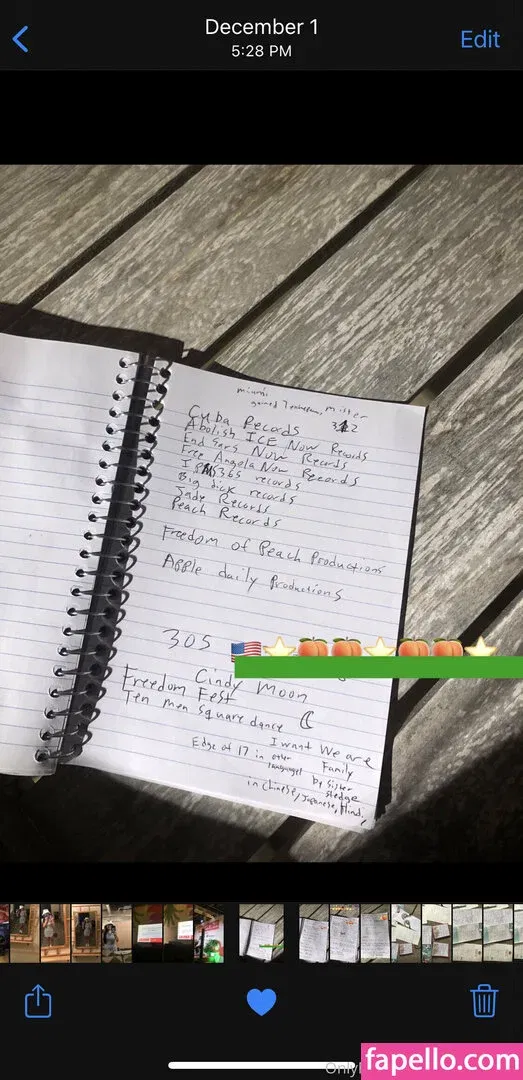 December 1
5:28 PM
Edit
miami
gained
mister
312
Cuba Records
Abolish ICE Now Records
End Sars Now Records
Free Angela Now Records
365 records
Big dick records
Jade Records
Peach Records
Freedom of Peach Productions
Apple daily Productions
305
Cindy Moon
Freedom Fest
Ten men square dance
I want We are
Edge of 17 in other Family
languages by Sister
Sledge
in Chinese, Japanese, Hindi,
fapello.com